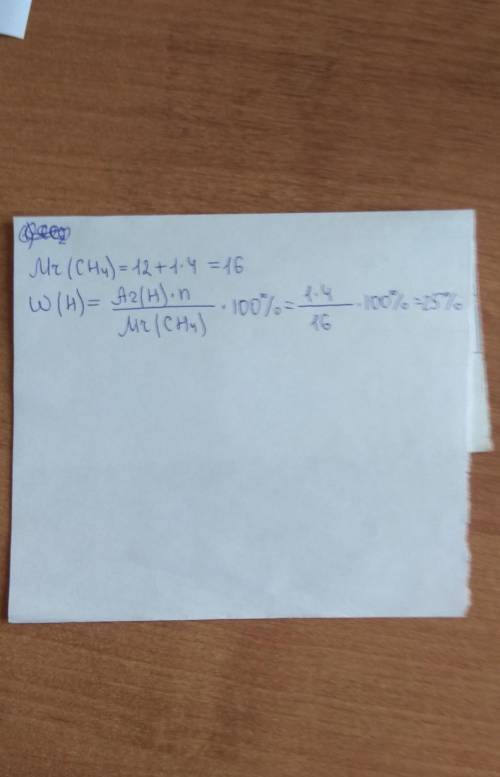 Mr(CH4)=12+1·4=16
W(H)= Ar(H)·n / Mr(CH4) ·100%= 1·4 / 16 ·100%=25%